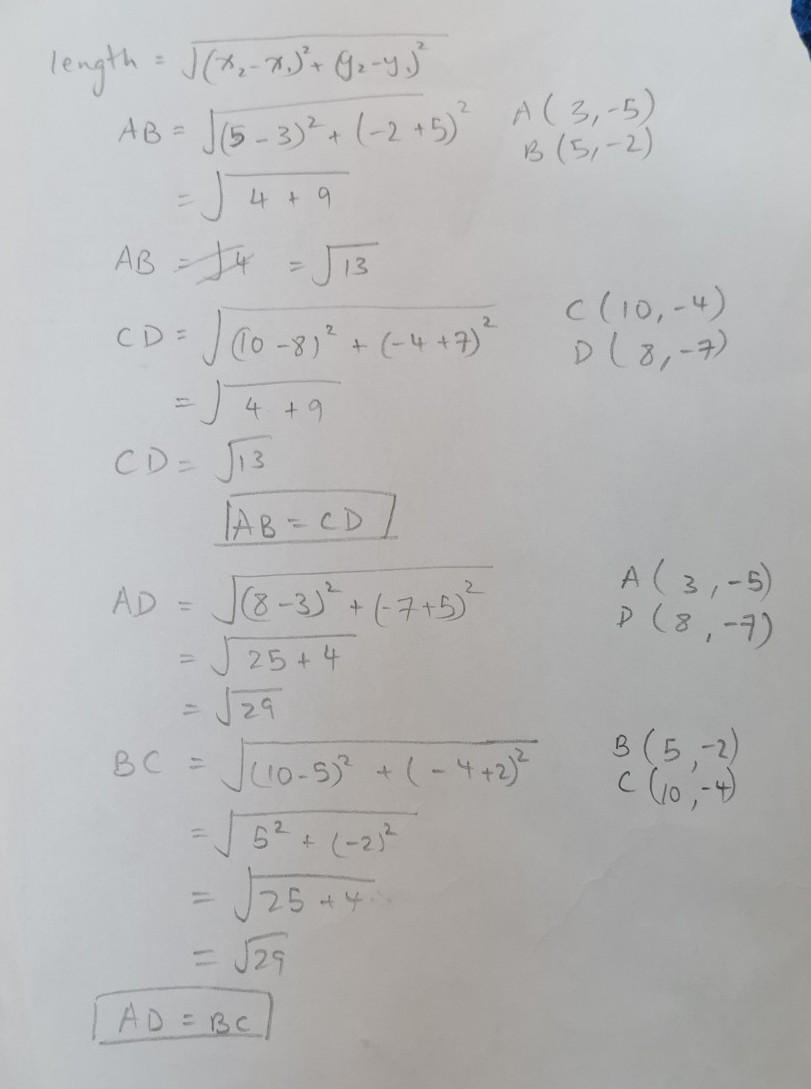 length = √(x₂-x₁)²+(y₂-y₁)²
AB = √(5-3)²+(-2+5)² A(3,-5)
B(5,-2)
= √4+9
AB = √4 = √13
CD = √(10-8)²+(-4+7)² C(10,-4)
D(8,-7)
= √4+9
CD = √13
AB = CD
AD = √(8-3)²+(-7+5)² A(3,-5)
D(8,-7)
= √25+4
= √29
BC = √(10-5)²+(-4+2)² B(5,-2)
C(10,-4)
= √5²+(-2)²
= √25+4
= √29
AD = BC